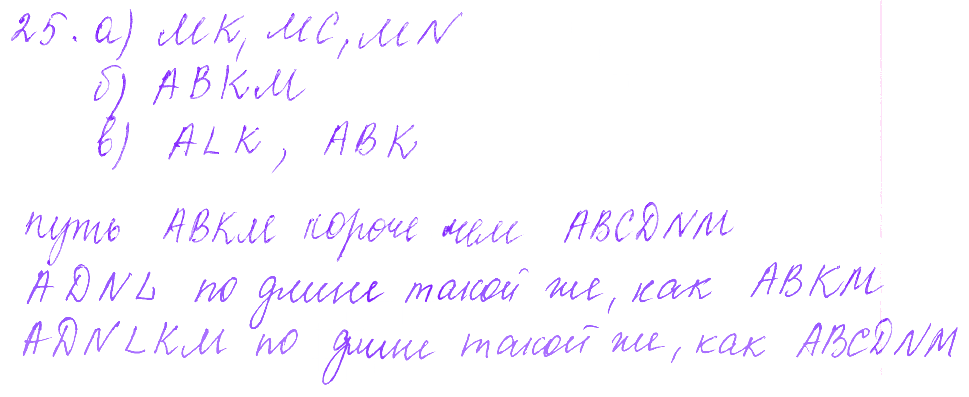 25. а) МК, МС, MN
б) АВКМ
в) ALK, ABK
путь АВКМ короче чем ABCDNM
ADNL по длине такой же, как АВКМ
ADNLKM по длине такой же, как ABCDNM